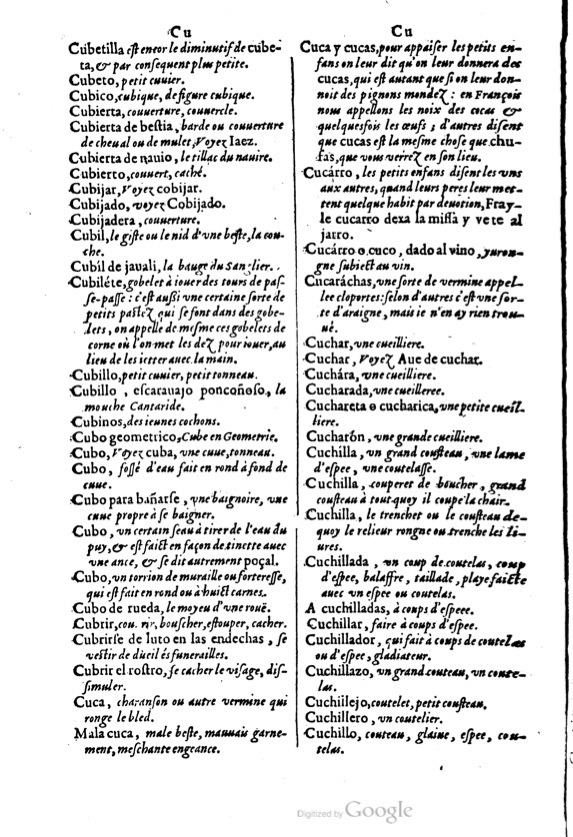 Cu
Cubetilla eſt encor le diminutif de cube-
ta, & par conſequent plus petite.
Cubeto, petit cuuier.
Cubico, cubique, de figure cubique.
Cubierta, couuerture, couuercle.
Cubierta de beſtia, barde ou couuerture
de cheual ou de mulet, Voyez Iaez.
Cubierta de nauio, le tillac du nauire.
Cubierto, couuert, caché.
Cubijar, Voyez cobijar.
Cubijado, voyez Cobijado.
Cubijadera, couuerture.
Cubil, le giſte ou le nid d'vne beſte, la cou-
che.
Cubil de jauali, la bauge du Sanglier.
Cubiléte, gobelet à iouer des tours de paſ-
ſe-paſſe : c'eſt auſſi vne certaine ſorte de
petits paſtez qui ſe font dans des gobe-
lets, on appelle de meſme ces gobelets de
corne où l'on met les dez pour iouer, au
lieu de les ietter auec la main.
Cubillo, petit cuuier, petit tonneau.
Cubillo, eſcarauajo ponçoñoſo, la
mouche Cantaride.
Cubinos, des ieunes cochons.
Cubo geometrico, Cube en Geometrie.
Cubo, Voyez cuba, vne cuue, tonneau.
Cubo, foſſé d'eau fait en rond à fond de
cuue.
Cubo para bañarſe, vne baignoire, vne
cuue propre à ſe baigner.
Cubo, vn certain ſeau à tirer de l'eau du
puy, & eſt faict en façon de tinette auec
vne ance, & ſe dit autrement poçal.
Cubo, vn torrion de muraille ou fortereſſe,
qui eſt fait en rond ou à huict carnes.
Cubo de rueda, le moyeu d'vne rouë.
Cubrir, cou. rir, bouſcher, eſtouper, cacher.
Cubrirſe de luto en las endechas, ſe
veſtir de dueil és funerailles.
Cubrir el roſtro, ſe cacher le viſage, diſ-
ſimuler.
Cuca, charanſon ou autre vermine qui
ronge le bled.
Mala cuca, male beſte, mauuais garne-
ment, meſchante engeance.
Cu
Cuca y cucas, pour appaiſer les petits en-
fans on leur dit qu'on leur donnera des
cucas, qui eſt autant que ſi on leur don-
noit des pignons mondez : en François
nous appellons les noix des cocas &
quelquesfois les œufs ; d'autres diſent
que cucas eſt la meſme choſe que chu-
fas, que vous verrez en ſon lieu.
Cucárro, les petits enfans diſent les vns
aux autres, quand leurs peres leur met-
tent quelque habit par deuotion, Fray-
le cucarro dexa la miſſa y vete al
jarro.
Cucárro o cuco, dado al vino, yuron-
gne ſubiect au vin.
Cucaráchas, vne ſorte de vermine appel-
lee cloportes : ſelon d'autres c'eſt vne ſor-
te d'araigne, mais ie n'en ay rien trou-
ué.
Cuchar, vne cueilliere.
Cuchar, Voyez Aue de cuchar.
Cuchára, vne cueilliere.
Cucharada, vne cueilleree.
Cuchareta o cucharica, vne petite cueil-
liere.
Cucharón, vne grande cueilliere.
Cuchilla, vn grand couſteau, vne lame
d'eſpee, vne coutelaſſe.
Cuchilla, couperet de boucher, grand
couſteau à tout quoy il coupe la chair.
Cuchilla, le trenchet ou le couſteau de-
quoy le relieur rongne ou trenche les li-
ures.
Cuchillada, vn coup de coutelas, coup
d'eſpee, balaffre, taillade, playe faicte
auec vn eſpee ou coutelas.
A cuchilladas, à coups d'eſpeee.
Cuchillar, faire à coups d'eſpee.
Cuchillador, qui fait à coups de coutelas
ou d'eſpee, gladiateur.
Cuchillazo, vn grand couteau, vn coute-
las.
Cuchillejo, coutelet, petit couſteau.
Cuchillero, vn coutelier.
Cuchillo, couteau, glaiue, eſpee, cou-
telas.
Digitized by Google